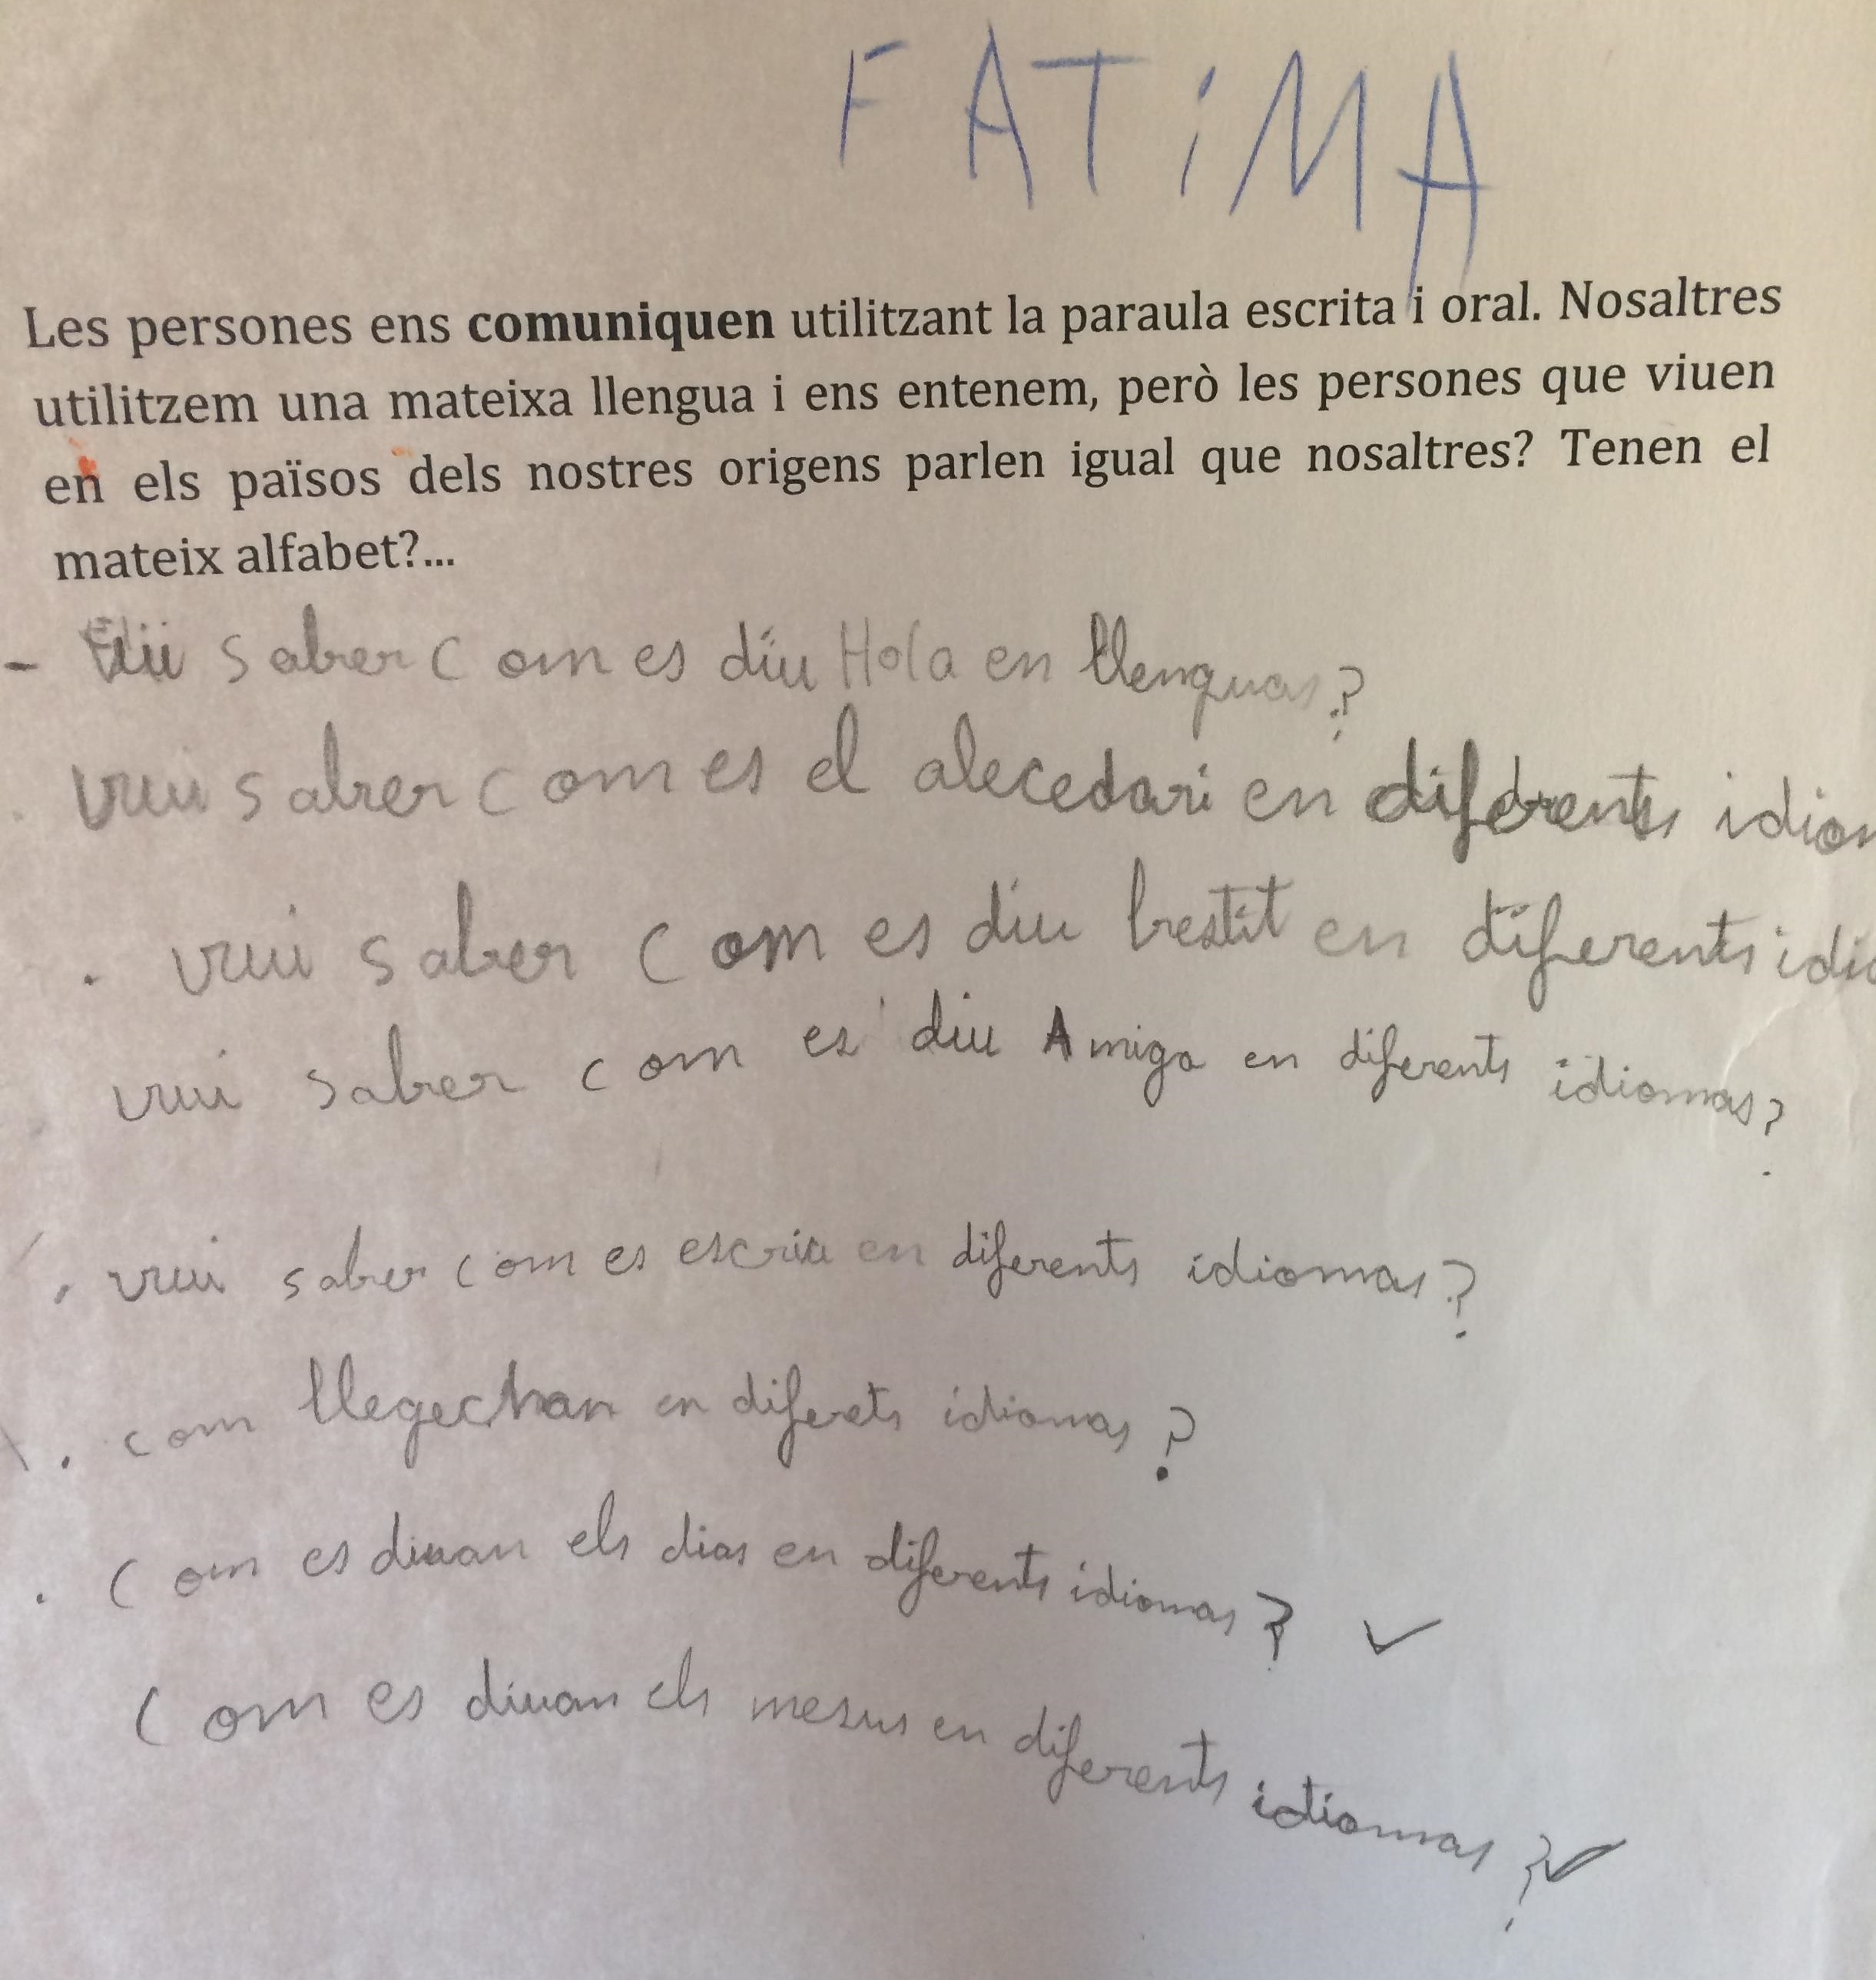 FATiMA
Les persones ens comuniquen utilitzant la paraula escrita i oral. Nosaltres
utilitzem una mateixa llengua i ens entenem, però les persones que viuen
en els països dels nostres origens parlen igual que nosaltres? Tenen el
mateix alfabet?...
- saber com es diu Hola en llenguas?
vui saber com es el abecedari en diferents idiom
. vui saber com es diu bestit en diferents idio
vui saber com es diu Amiga en diferents idiomas?
. vui saber com es escriu en diferents idiomas?
. com llegechan en diferets idiomas?
. Com es diuan els dias en diferents idiomas? ✓
Com es diuan els mesus en diferents idiomas? ✓